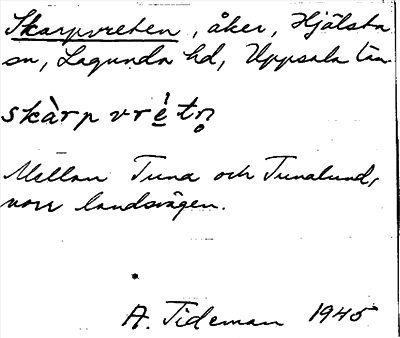 Skarpvreten, åker, Hjälsta
sn, Lagunda hd, Uppsala län
skàrpvré̱tn̥
Mellan Tuna och Tunalund,
norr landsvägen.
A. Tideman 1945